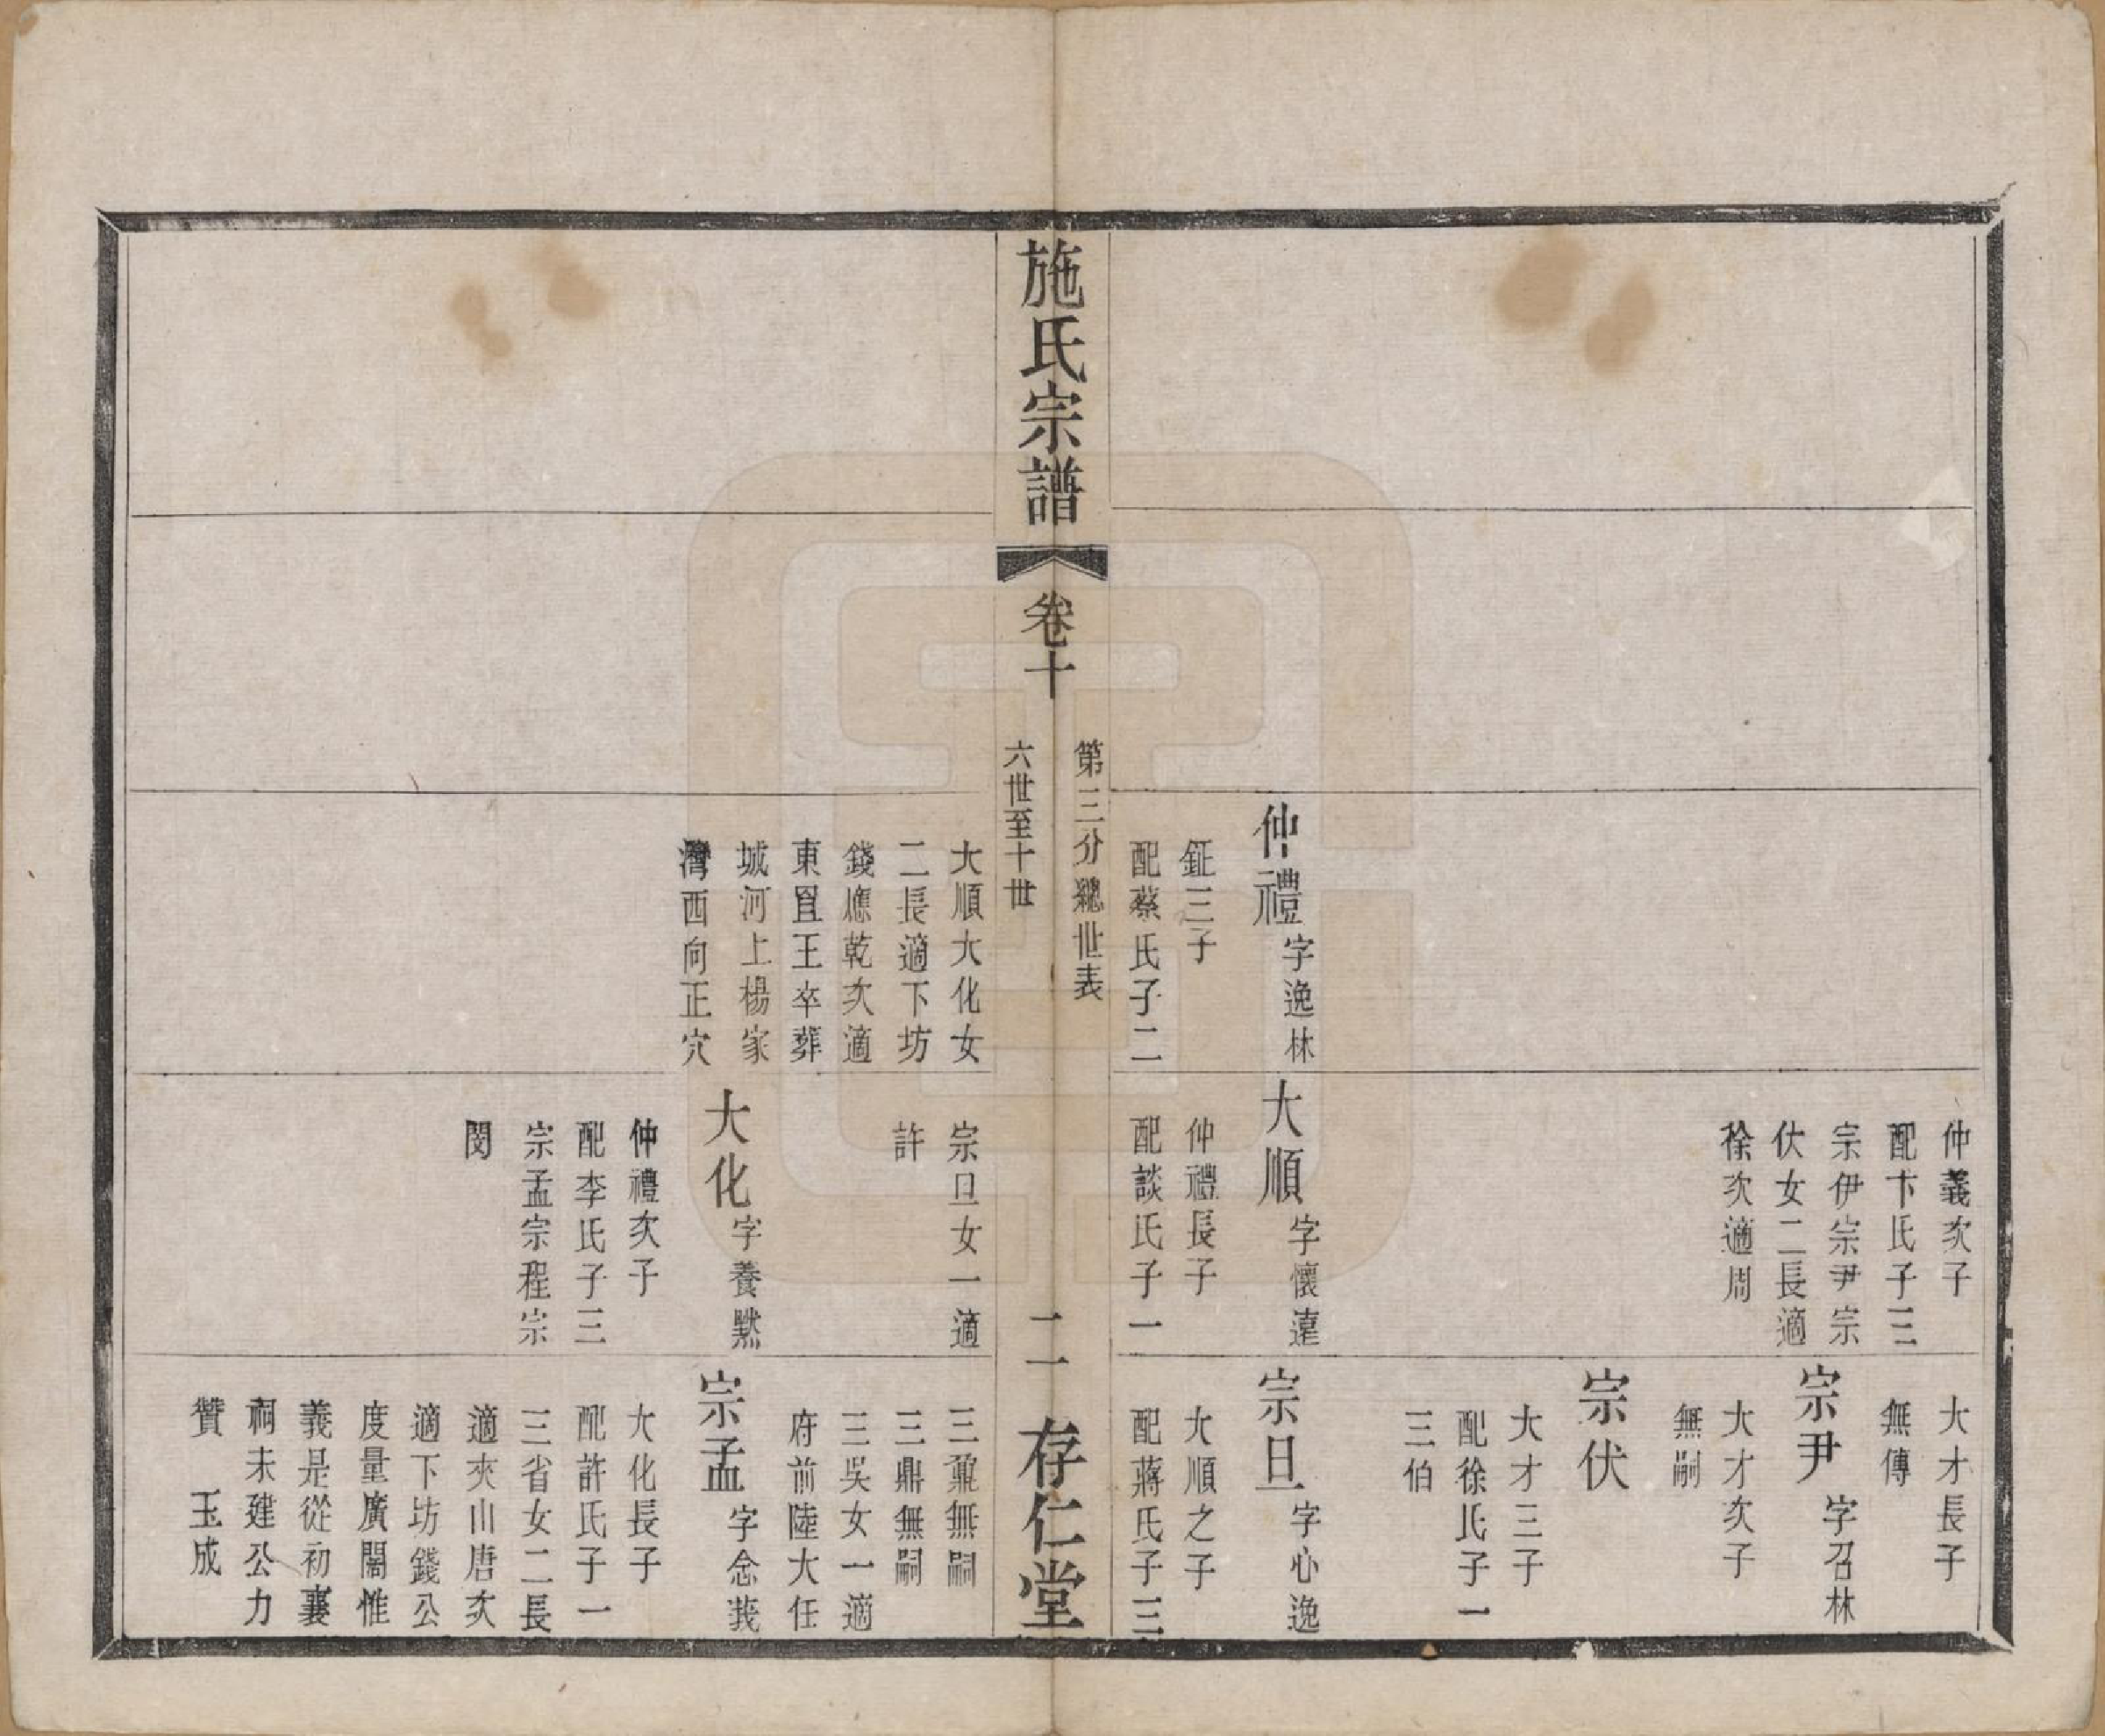 仲禮字逸林
鉦三子
配蔡氏子二
仲義次子
配卞氏子三
宗伊宗尹宗
伏女二長適
徐次適周
大順字懷蓮
仲禮長子
配談氏子一
大才長子
無傳
宗尹字召林
大才次子
無嗣
宗伏
大才三子
配徐氏子一
三伯
宗旦字心逸
大順之子
配蔣氏子三
施氏宗譜
卷十
第三分總世表
六世至十世
二一
存仁堂
大順大化女
二長適下坊
錢應乾次適
東亘王卒葬
城河上楊家
灣西向正穴
宗旦女一適
許
大化字養默
仲禮次子
配李氏子三
宗孟宗程宗
閔
三鼐無嗣
三鼎無嗣
三吳女一適
府前陸大任
宗孟字念莪
大化長子
配許氏子一
三省女二長
適夾山唐次
適下坊錢公
度量廣闊惟
義是從初襄
祠未建公力
贊 玉成